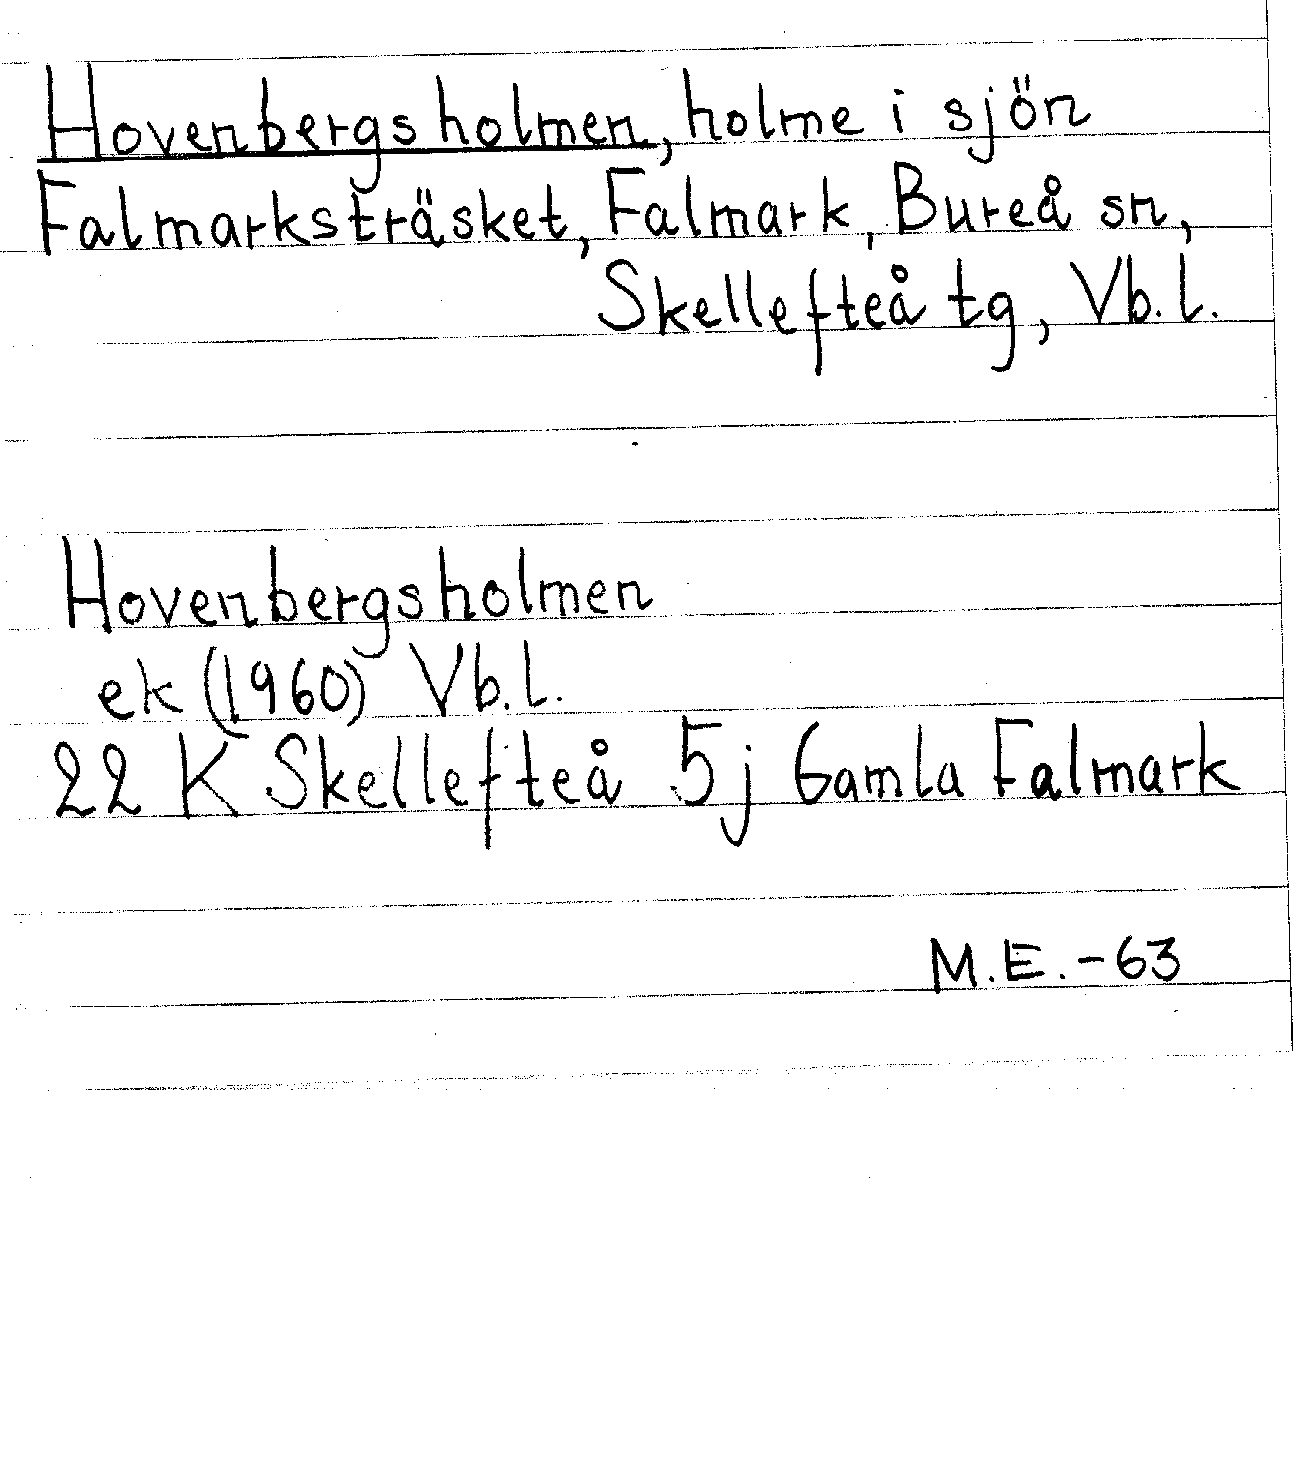 Hovenbergsholmen, holme i sjön
Falmarksträsket, Falmark, Bureå sn,
Skellefteå tg, Vb.l.
Hovenbergsholmen
ek (1960) Vb.l.
22 K Skellefteå 5j Gamla Falmark
M.E.-63